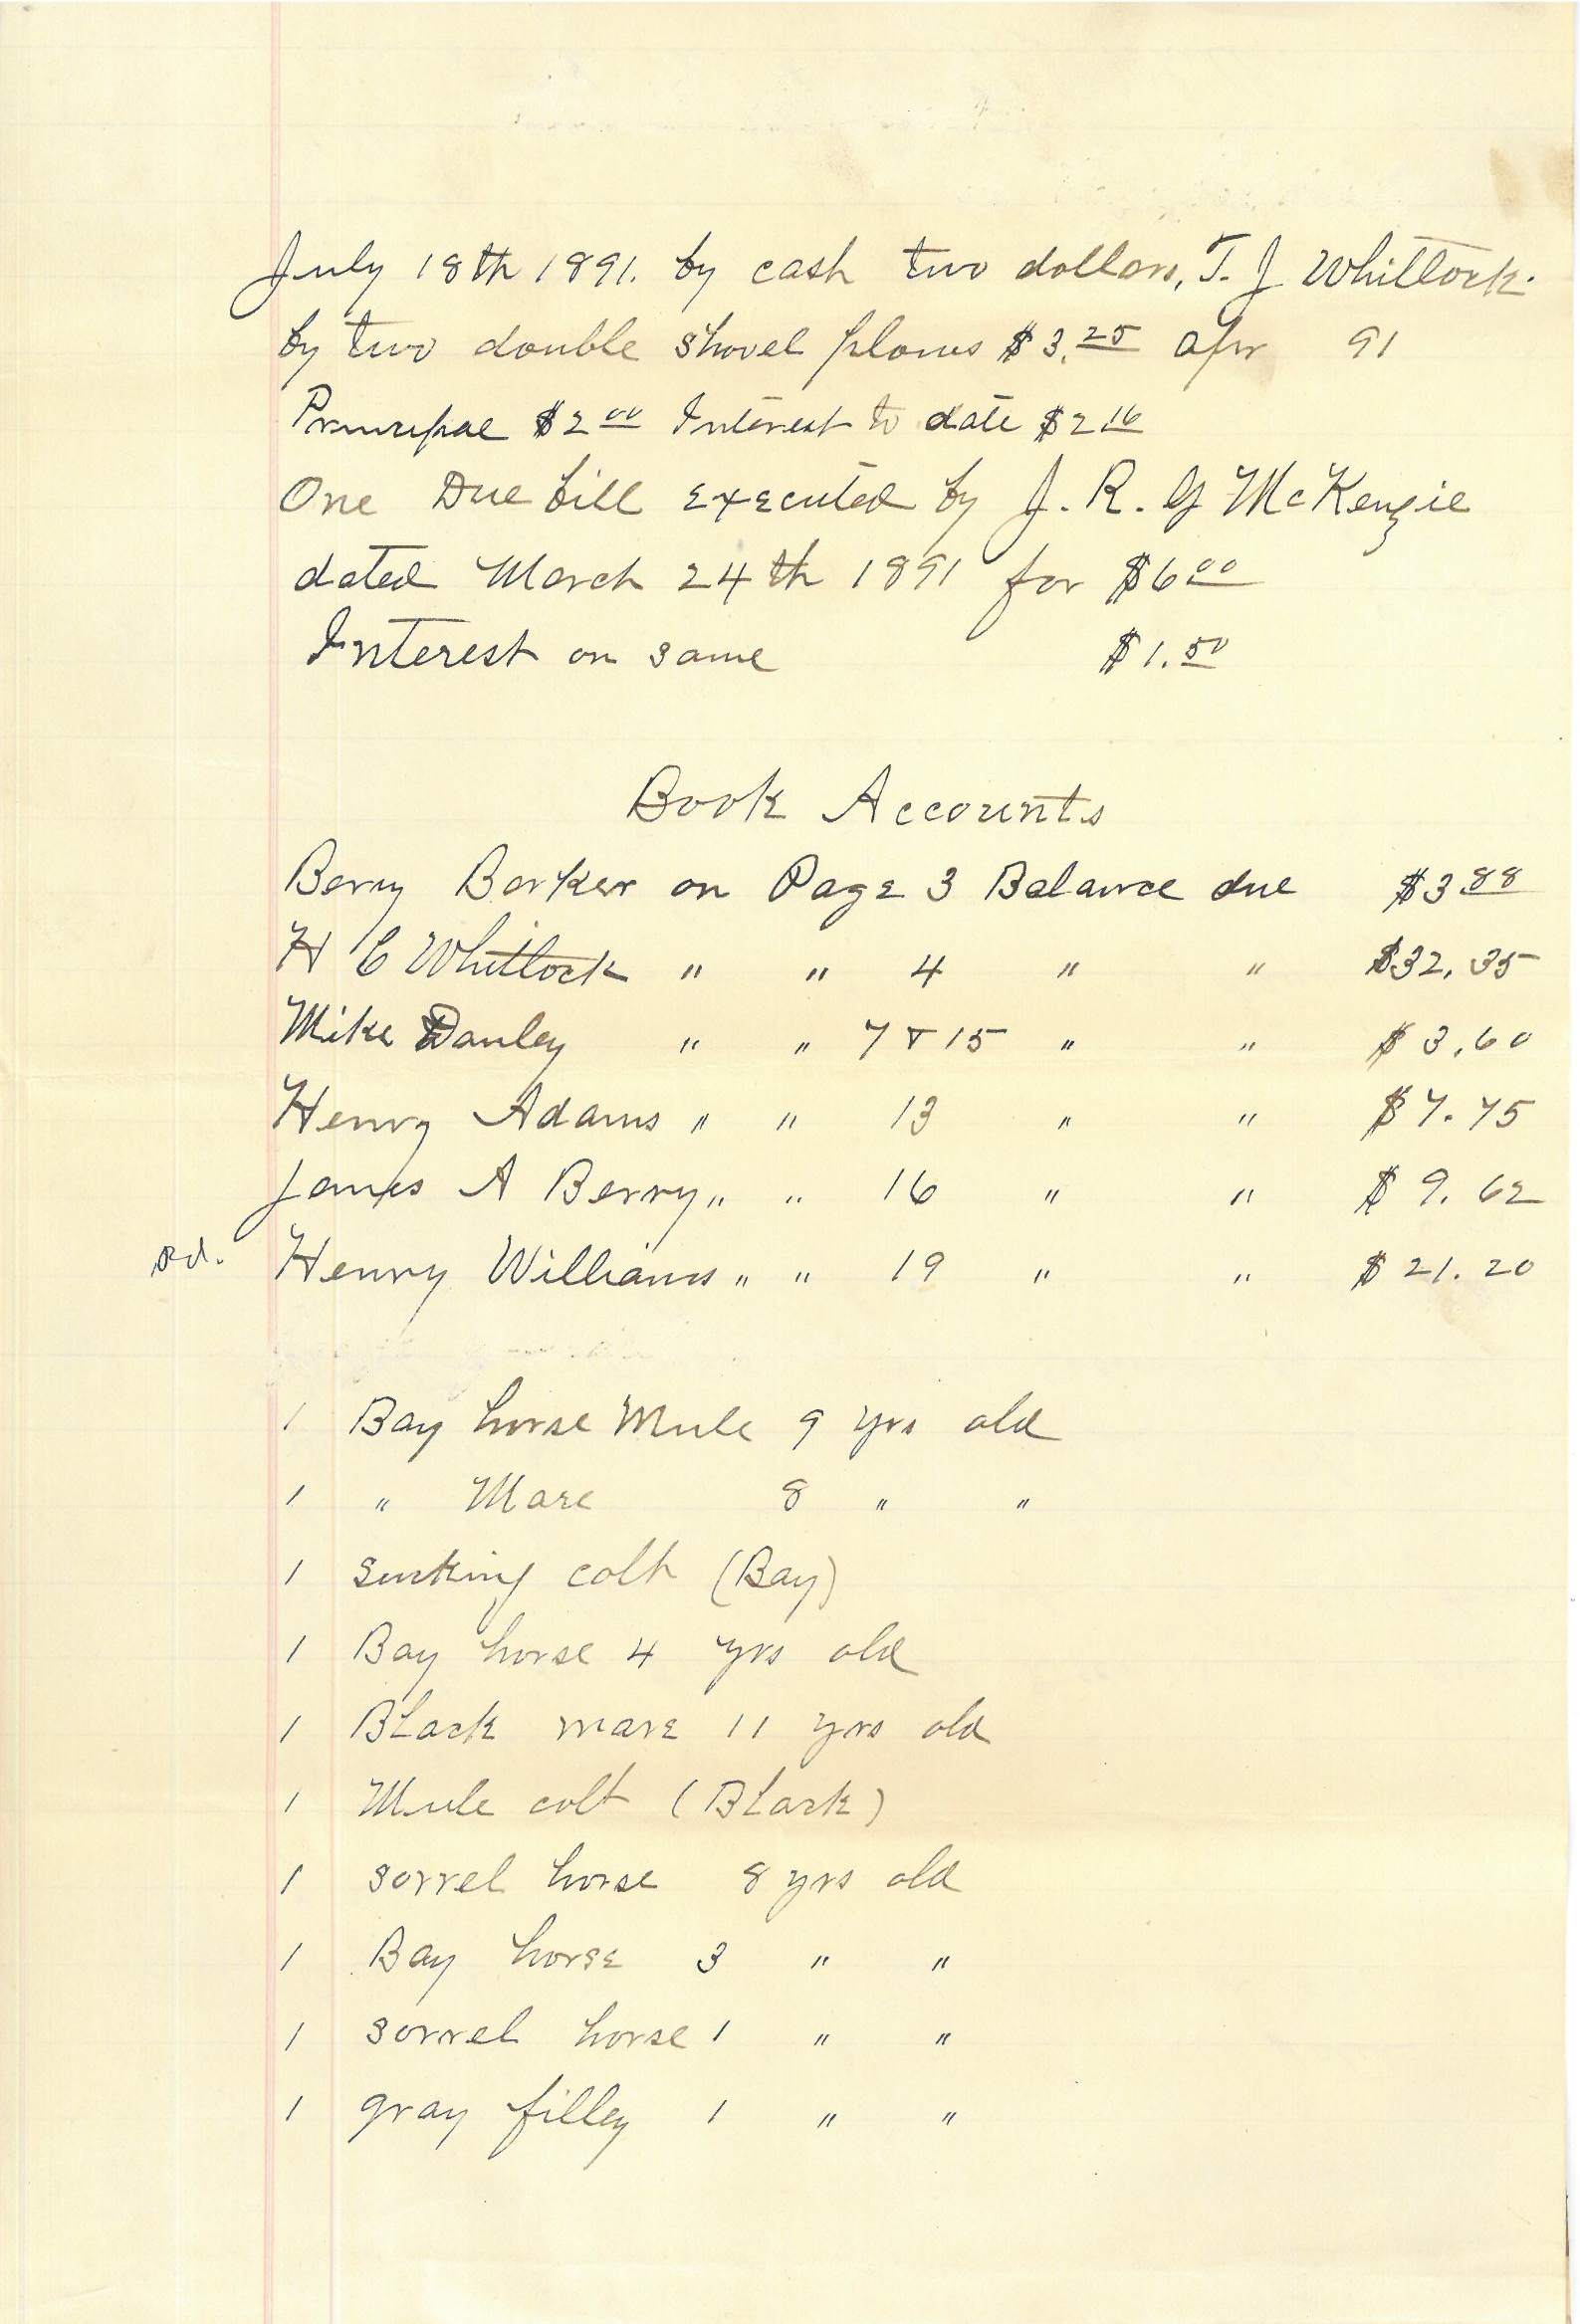 July 18th 1891. by cash two dollars, T. J Whitlock.
by two double shovel plows $3.25 Apr 91
Principal $2 00 Interest to date $2 16
One Due bill executed by J. R. G McKenzie
dated March 24th 1891 for $6 00
Interest on same $1.50
Book Accounts
Berry Barker on Page 3 Balance due $3 88
H C Whitlock " " 4 " " $32.35
Mike Danley " " 7 & 15 " " $3.60
Henry Adams " " 13 " " $7.75
James A Berry " " 16 " " $9.62
Henry Williams " " 19 " " $21.20
1 Bay horse Mule 9 yrs old
1 " Mare 8 " "
1 sucking colt (Bay)
1 Bay horse 4 yrs old
1 Black mare 11 yrs old
1 Mule colt (Black)
1 sorrel horse 8 yrs old
1 Bay horse 3 " "
1 sorrel horse 1 " "
1 gray filley 1 " "